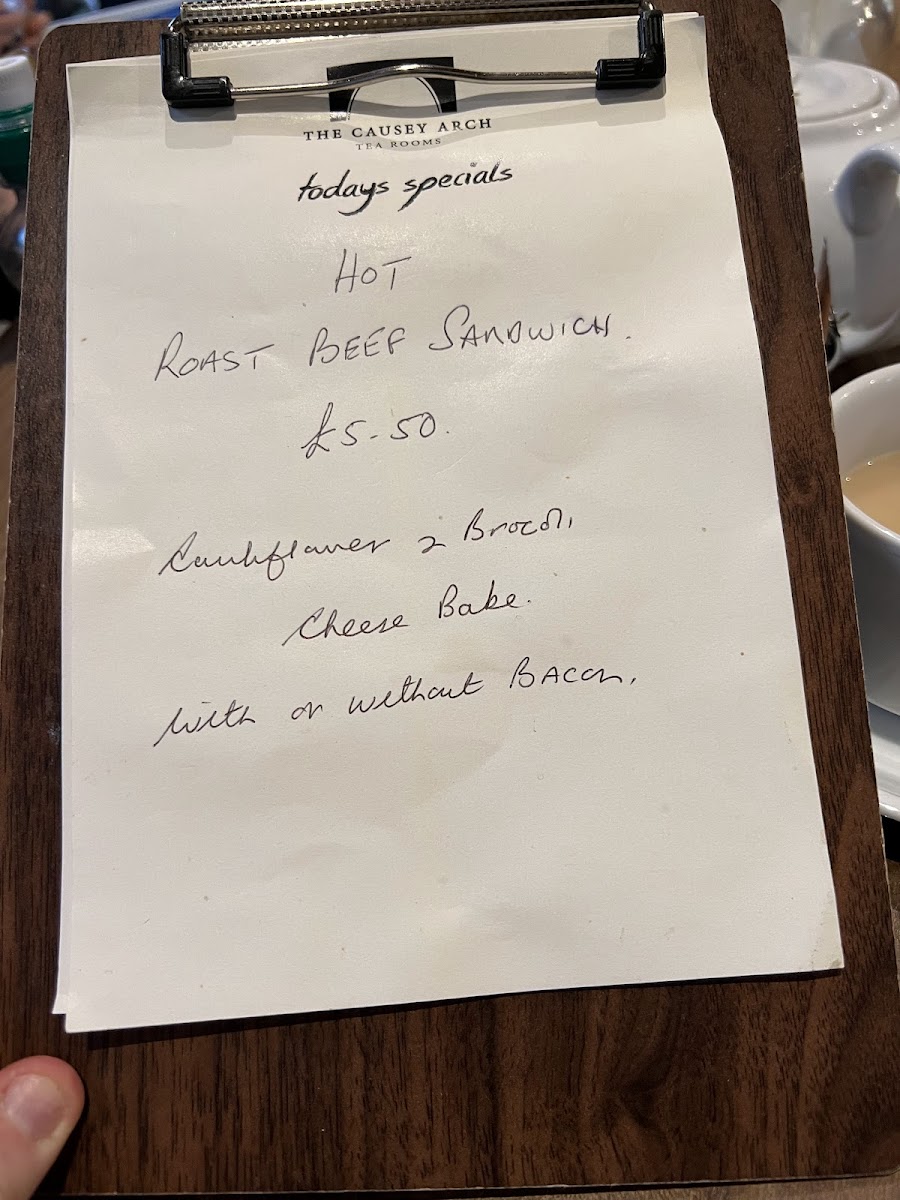 THE CAUSEY ARCH
TEA ROOMS
todays specials
HOT
ROAST BEEF SANDWICH.
£5-50.
Cauliflower & Brocoli
Cheese Bake.
With or without BACon.